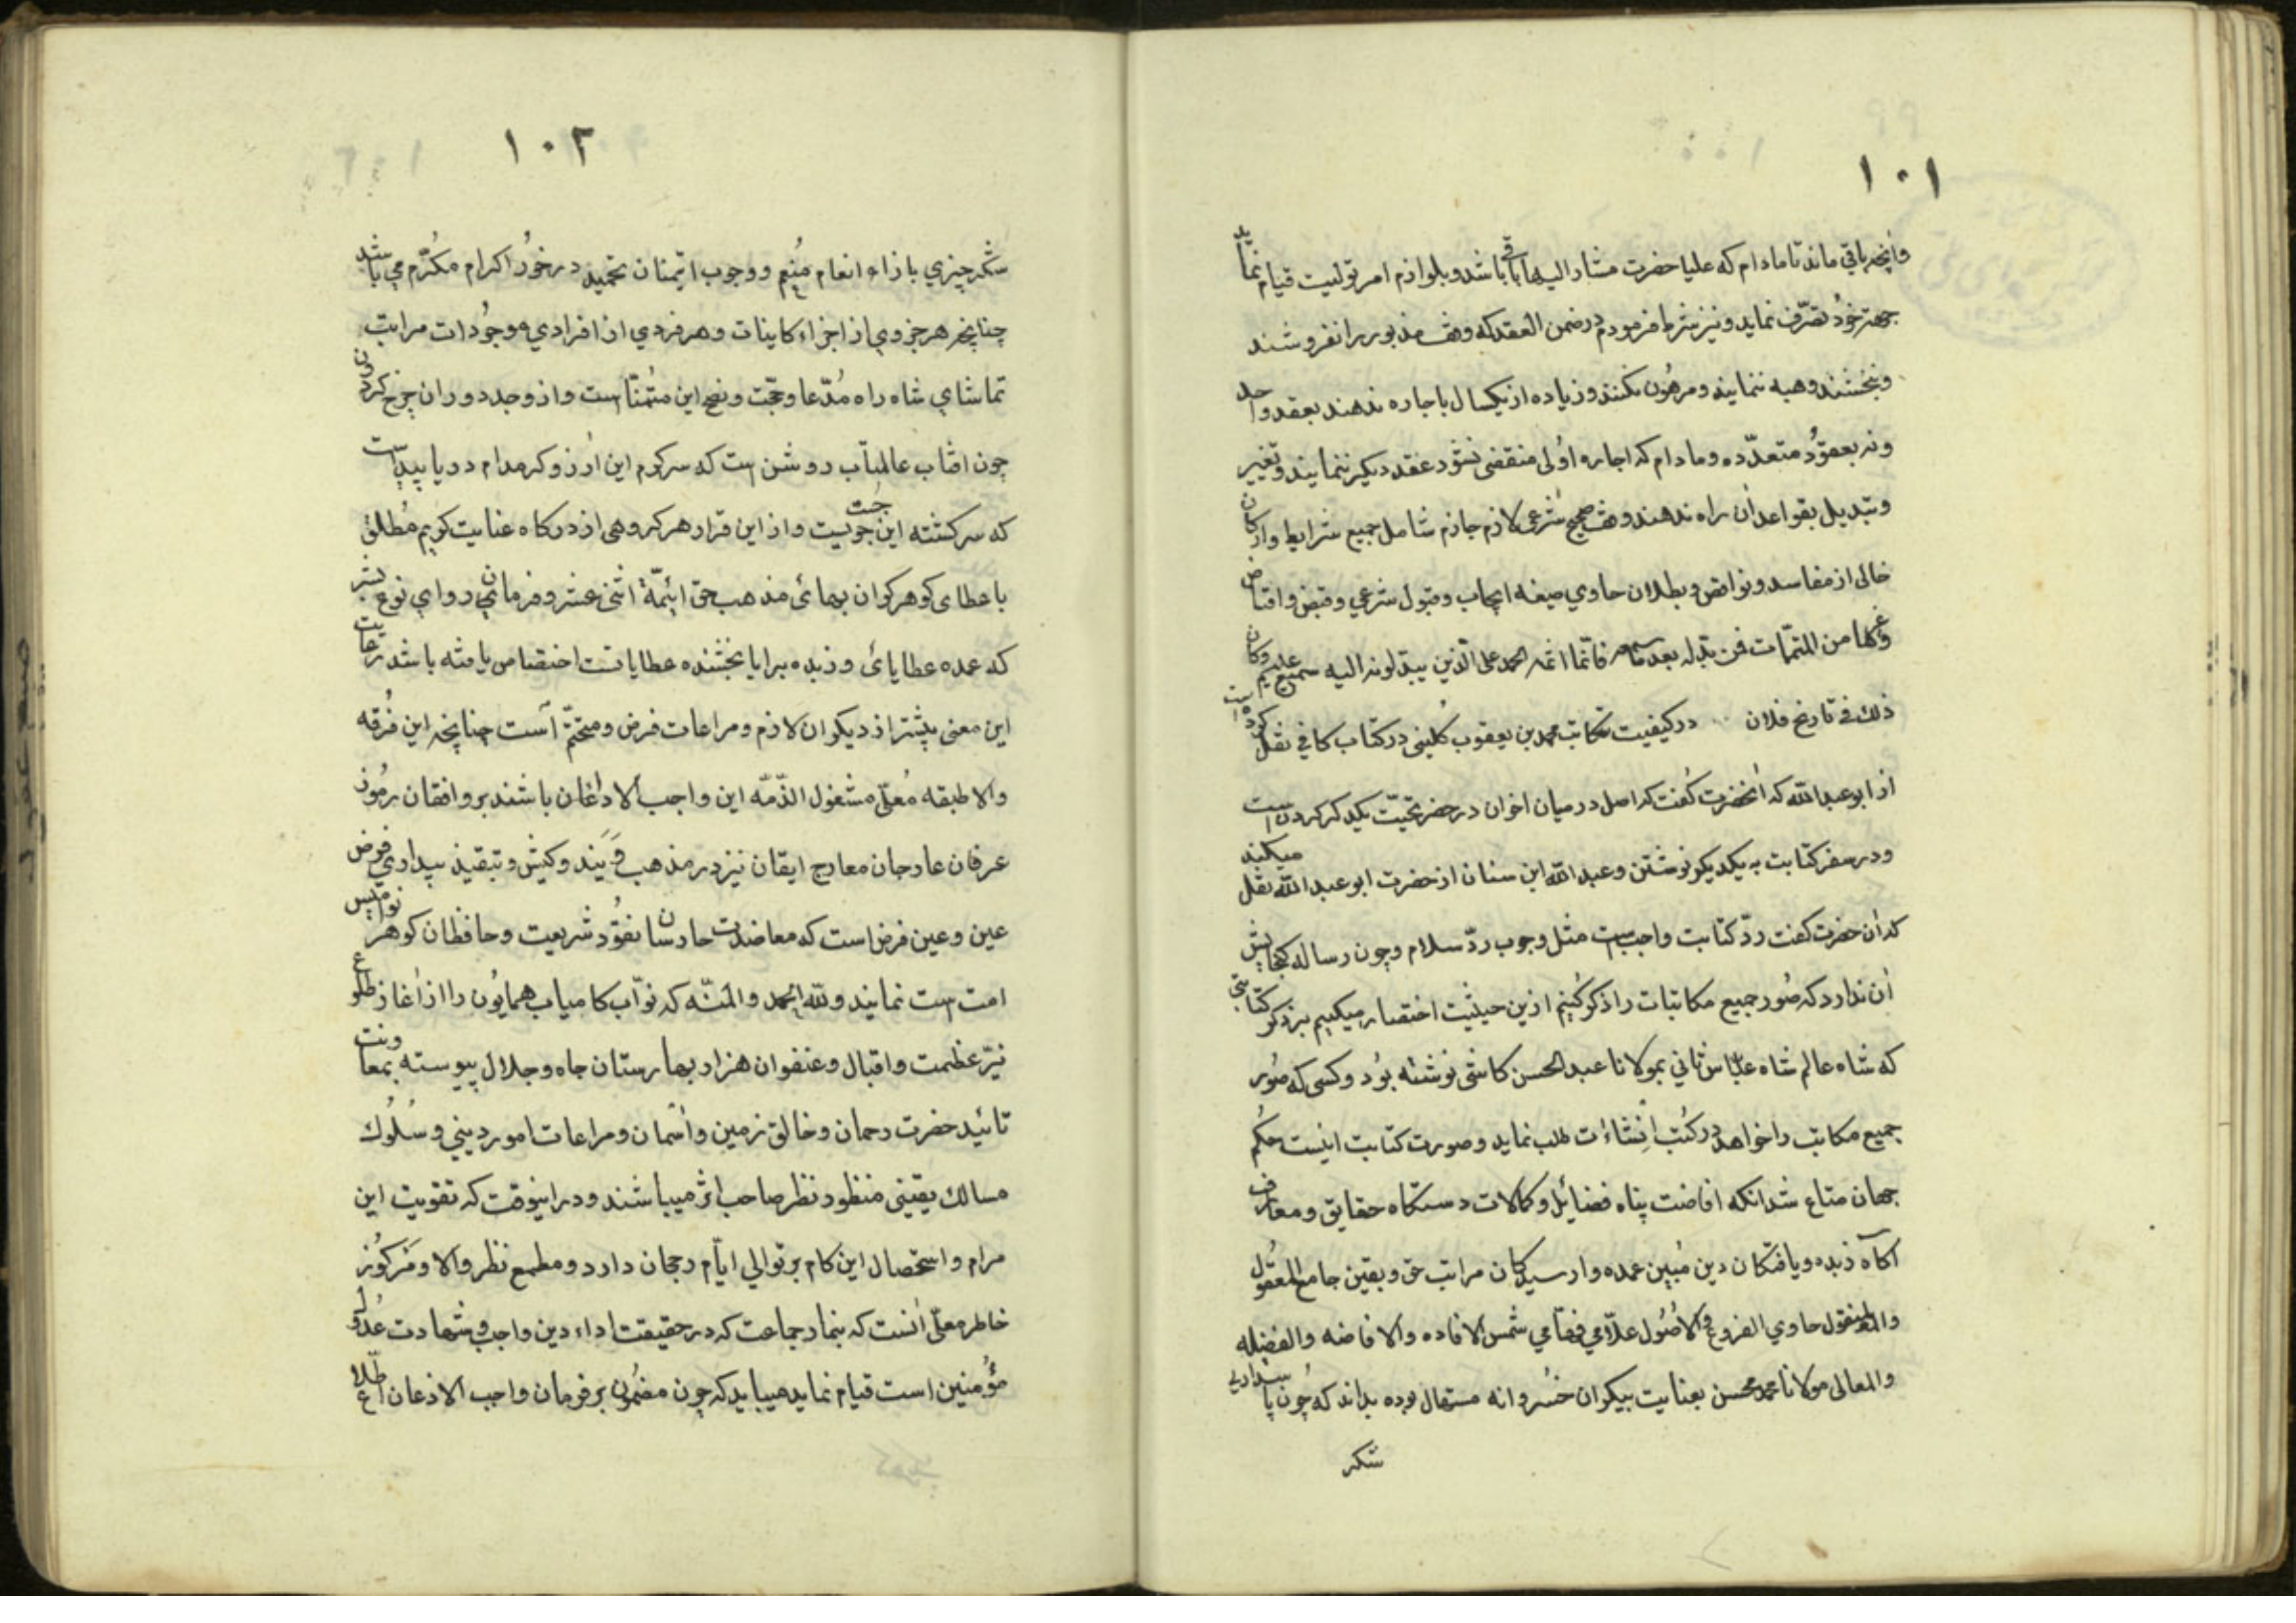 ١٠١
وانچه باقی ماند تا مادام که علیا حضرت مشار الیها باقی باشد و بلوازم امر تولیت قیام نماید
جهته خود تصرّف نماید و نیز شرط فرمودم در ضمن العقد که وقف مذبور را نفروشند
و نبخشند و هبه ننمایند و مرهون نکنند و زیاده از یکسال باجاره ندهند بعقد واحد
و نه بعقود متعدّده و مادام که اجاره اولی منقضی نشود عقد دیگر ننمایند و تغییر
و تبدیل بقواعد آن راه ندهند وقف صحیح شرعی لازم جازم شامل جمیع شرایط و ارکان
خالی از مفاسد و نواقص و بطلان حاوی صیغه ایجاب و قبول شرعی و قبض و اقباض
و غیرها من المتمّمات فمن بدّله بعد ما سمعه فانّما اثمه علی الّذین یبدلونه الیه سمیع علیم وکان
ذلك في تاریخ فلان در کیفیت مکاتبت محمد بن یعقوب کلینی در کتاب کافی نقل کرده است
از ابو عبدالله که آنحضرت گفت که اصل در میان اخوان در حضر تحیّت یکدیگر کردن است
و در سفر کتابت به یکدیگر نوشتن و عبدالله ابن سنان از حضرت ابو عبدالله نقل میکند
که آن حضرت گفت ردّ کتابت واجب است مثل وجوب ردّ سلام و چون رساله گنجایش
آن ندارد که صور جمیع مکاتبات را ذکر کنیم ازین حیثیت اختصار میکنیم بذکر کتابتی
که شاه عالم شاه عبّاس ثانی بمولانا عبد الحسن کاشی نوشته بود و کسی که صور
جمیع مکاتب را خواهد در کتب انشاءات طلب نماید و صورت کتابت اینست حکم
جهان متاع شد آنکه افاضت پناه فضایل و کمالات دستگاه حقایق و معارف
اکاه زبده و یافتگان دین مبین عمده وارسیدگان مراتب حق و یقین جامع المعقول
والمنقول حاوي الفروع والاصول علّامي فهّامي شمس الافاده والافاضه والفضیله
والمعالی مولانا محمد محسن بعنایت بیکران خسروانه مستمال بوده بداند که چون پاسداری
شکر
١٠٢
شکر چیزی بازاء انعام منعم و وجوب ایتمنان تحمید در خور اکرام مکرّم می باشد
چنانچه هر جزوی از اجزاء کاینات و هر فردی از افرادی موجودات مراتب
تماشای شاه راه مدّعا و حجّت و نهج این متمنّاست و از وجد دوران چرخ گردون
چون افتاب عالمتاب روشن است که سرگرم این ارزو گر مدام در پا پیداست
که سرگشته این جست جویست و از این قرار هر گروهی از درگاه عنایت کریم مطلق
با عطای گوهر گران بهائی مذهب حق ائمّة اثنی عشر و فرمانروای نوع بشر
که عمده عطایای و زبده برایا بخشنده عطایافت اختصاص یافته باشد رعایت
این معنی بیشتر از دیگران لازم و مراعات فرض و متحتّم است چنانچه این فرقه
والا طبقه معلّی مشغول الذّمّه این واجب الاذعان باشند بر وافقان رموز
عرفان عارجان معارج ایقان نیز در مذهب و کیش و تبقیذ بیداری فرض
عین و عین فرض است که معاضدت حارسان نفود شریعت و حافظان گوهر نوامیس
امت است نمایند ولله الحمد والمنّه که نوّاب کامیاب همایون را از آغاز طلوع
نیّر عظمت و اقبال و عنفوان هزار بهارستان جاه و جلال پیوسته بمعاونت
تائید حضرت رحمان و خالق زمین و اسمان و مراعات امور دینی و سلوك
مسالك یقینی منظور نظر صاحب اثر میباشند و دراینوقت که تقویت این
مرام و استحصال این کام بر توالی ایّام رجحان دارد و مطمع نظر والا و مرکوز
خاطر معلّی آنست که بنماز جماعت که در حقیقت اداء دین واجب و شهادت عدول
مؤمنین است قیام نماید میباید که چون مضمون بر فرمان واجب الاذعان اطّلاع